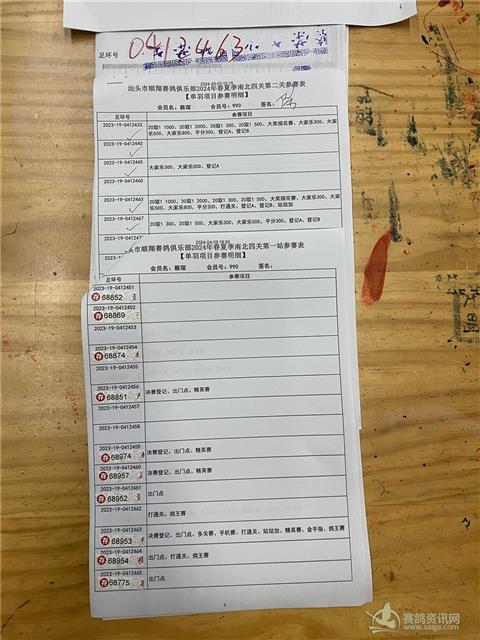 足环号
0412463
2024-05-03 10:15
汕头市顺翔赛鸽俱乐部2024年春夏季南北四关第二关参赛表
【单羽项目参赛明细】
会员名：蔡琛 会员号：990 签名：
足环号 参赛项目
2023-19-0412433 20取1 1000、20取1 2000、20取1 300、20取1 500、大奖插花赛、大家乐300、大家乐500、大家乐800、平分300、登记A、登记B
2023-19-0412440
2023-19-0412445 大家乐300、大家乐500、登记A
2023-19-0412460
2023-19-0412463 20取1 1000、20取1 2000、20取1 300、20取1 500、大奖插花赛、大家乐300、大家乐500、大家乐800、平分300、打通关、登记A、登记B、站站加
2023-19-0412467 20取1 300、20取1 500、大家乐300、大家乐500、平分300、登记A、登记B
2024-04-09 19:55
头市顺翔赛鸽俱乐部2024年春夏季南北四关第一站参赛表
【单羽项目参赛明细】
会员名：蔡琛 会员号：990 签名：
足环号 参赛项目
2023-19-0412451
68852
2023-19-0412452
68869
2023-19-0412453
2023-19-0412454
68874
2023-19-0412455
2023-19-0412456
68851 决赛登记、出门点、精英赛
2023-19-0412457
2023-19-0412458
2023-19-0412459
68974 决赛登记、出门点、精英赛
2023-19-0412460
68957 决赛登记、出门点、精英赛
2023-19-0412461
68952 出门点
2023-19-0412462 打通关、鸽王赛
2023-19-0412463
68953 决赛登记、出门点、多关赛、手机赛、打通关、站站加、精英赛、金手指、鸽王赛
2023-19-0412464
68954 出门点、打通关、鸽王赛
2023-19-0412465
68775 出门点
赛鸽资讯网
www.saige.com